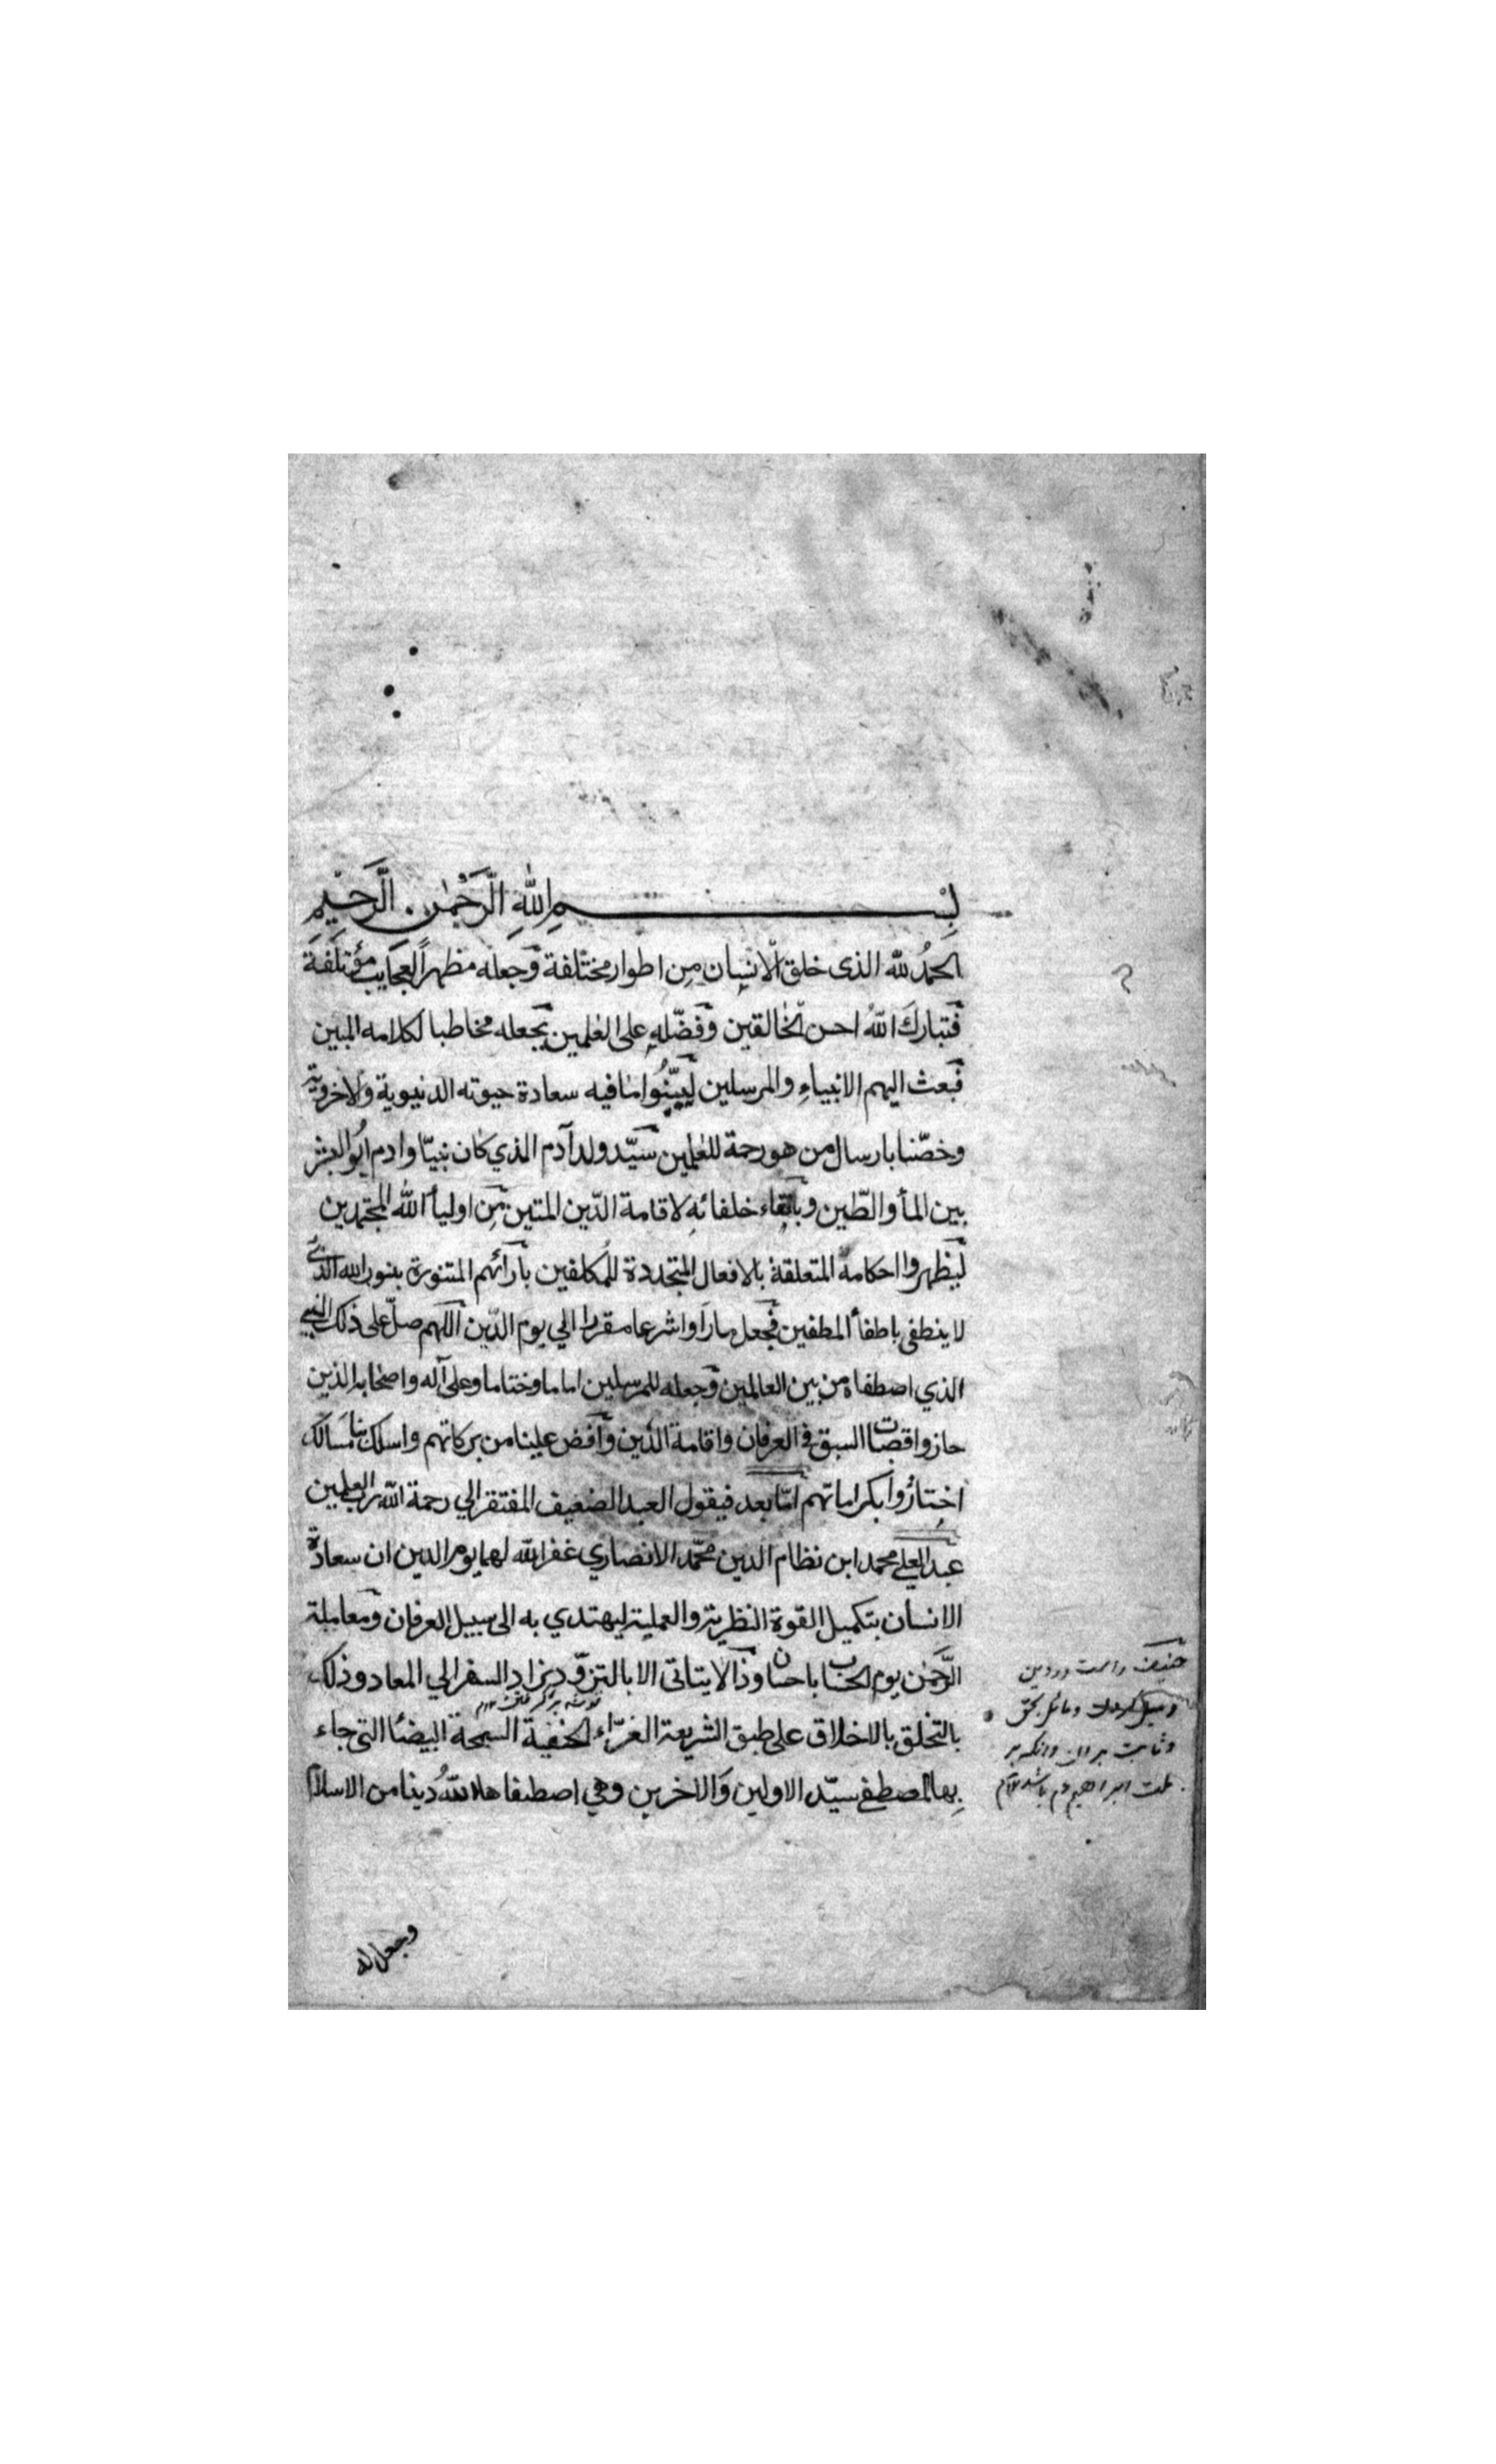 بِسْمِ اللهِ الرَّحْمٰنِ الرَّحِيْمِ
الحمدُ لله الذى خلق الانسان مِن اطوار مختلفة وجعله مظهراً لعجايب مؤتلفة
فتباركَ اللهُ احسن الخالقين وفضّله على العٰلمين بجعله مخاطبا لكلامه المبين
فبعث اليهم الانبياءِ والمرسلين ليبيّنُوا ما فيه سعادة حيوته الدنيوية والاخروية
وخصّنا بارسال من هو رحمة للعٰلمين سيّد ولد آدم الذي كان نبيّا وادم ابُو البشر
بين المأ والطّين وبابقاء خلفائهِ لاقامة الدّين المتين مِن اوليأ الله المجتهدين
ليظهروا احكامه المتعلقة بالافعال المتجددة للمكلفين بآرائهم المتنورة بنور الله الذي
لا ينطفى باطفأ المطفين فجعل ما رَاَوا شرعا مقررا الي يوم الدّين اللهم صلّ على ذلك النبي
الذي اصطفاه من بين العالمين وجعله للمرسلين اماما وختاما وعلى آله واصحٰابه الذين
حازوا قصبات السبق في العرفان واقامة الدين وافض علينا من بركاتهم واسلك بنا مسالك
اختارُوا بكراماتهم امّا بعد فيقول العبد الضعيف المفتقر الي رحمة الله رب العٰلمين
عبد العلي محمد ابن نظام الدين محمّد الانصاري غفر الله لهما يوم الدين ان سعادة
الانسان بتكميل القوة النظرية والعملية ليهتدي به الى سبيل العرفان ومعاملة
الرَّحمٰن يوم الحساب باحسان وذا لا يتاتى الا بالتزوّد بزاد السفر الي المعاد وذلك
بالتخلق بالاخلاق على طبق الشريعة الغرّاء الحنفية السمحة البيضٰا التى جاء
بِها المصطفى سيّد الاولين وَالاخرين وهي اصطفاها اللهُ دينا من الاسلام
حنيف راست در دين
ومائل بحق
وثابت بران وانكه بر
ملت ابراهيم
وجعل له